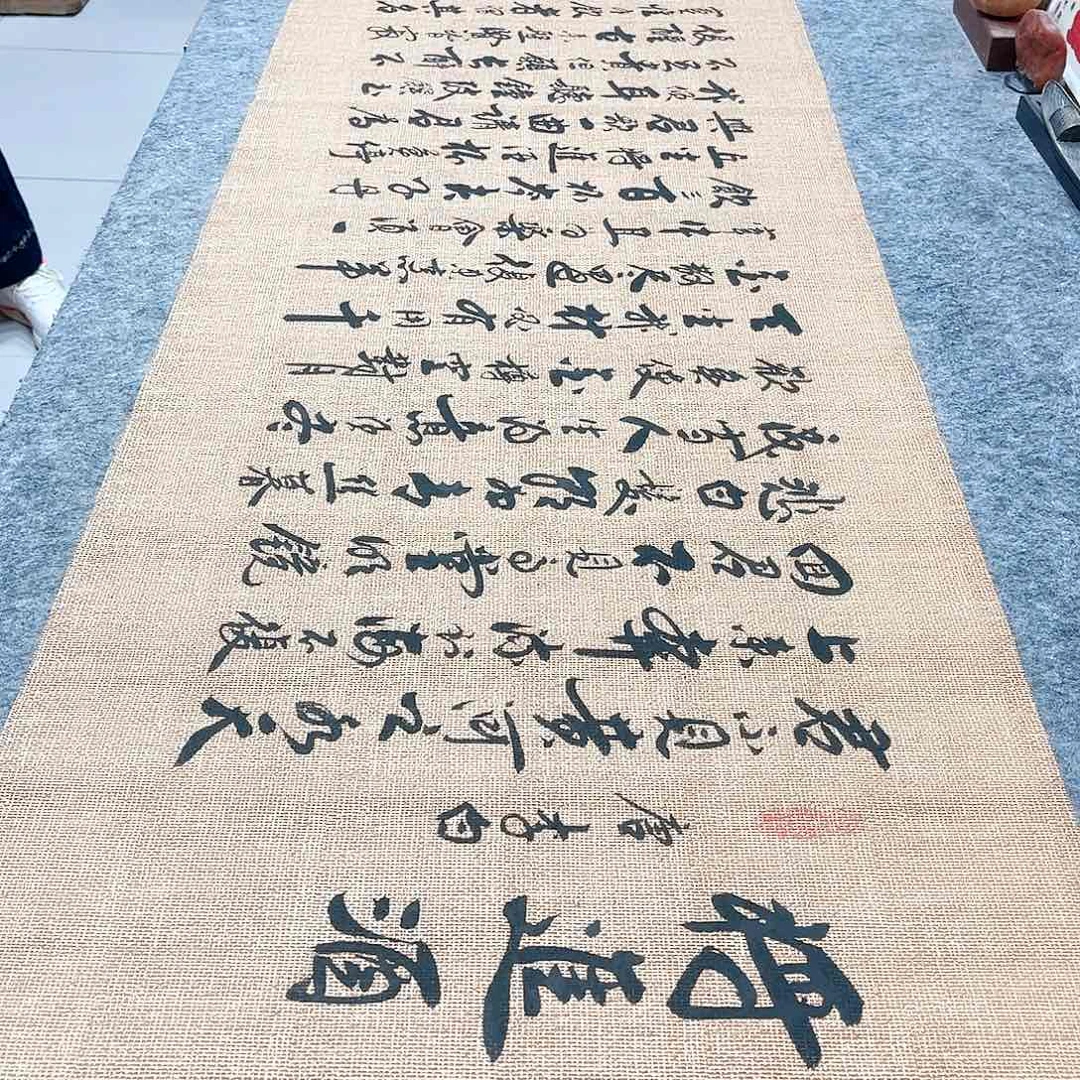 將進酒
唐李白
君不見黃河之水天
上來奔流到海不復
回君不見高堂明鏡
悲白髮朝如青絲暮
成雪人生得意須盡
歡莫使金樽空對月
天生我材必有用千
金散盡還復來烹羊
宰牛且為樂會須一
飲三百杯岑夫子丹
丘生將進酒杯莫停
與君歌一曲請君為
我傾耳聽鐘鼓饌玉
不足貴但願長醉不
復醒古來聖賢皆寂
寞惟有飲者留其名